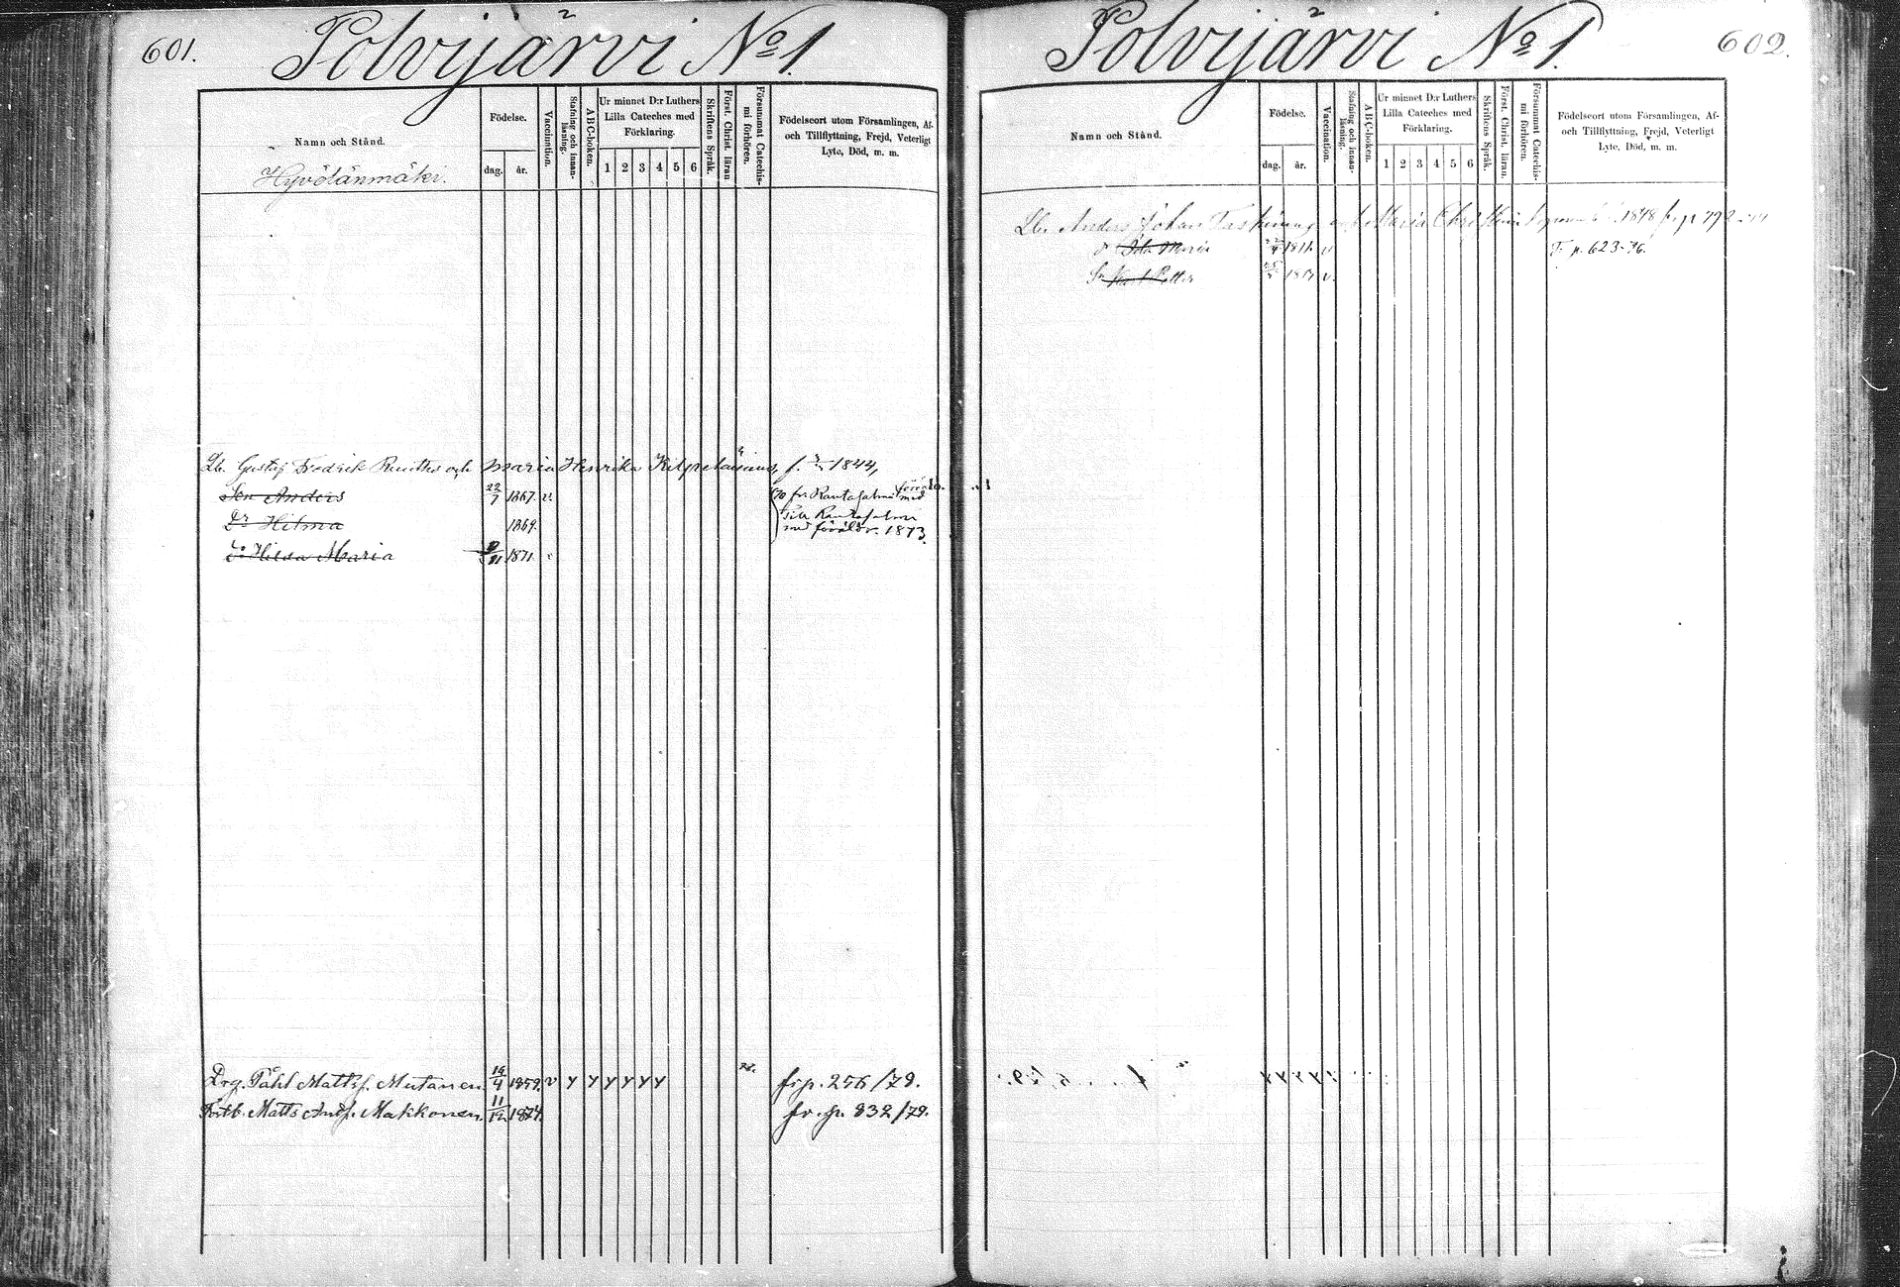 601.
Polvijärvi No 1.
Namn och Stånd.
Hyvölänmäki.
Födelse.
dag. år.
Vaccination.
Stafning och innanläsning.
ABC-boken.
Ur minnet D:r Luthers Lilla Cateches med Förklaring.
1 2 3 4 5 6
Skriftens Språk.
Först. Christ. läran
Försummat Catechismi förhören.
Födelseort utom Församlingen, Af- och Tillflyttning, Frejd, Veterligt Lyte, Död, m. m.
Lb. Gustaf Fredrik och Maria Henrika f. 1844,
Son Anders 22/7 1867. v. fr Rantasalmi med
Dr Hilma 1869. Till Rantasalmi
med föräldr. 1873.
D: Hilda Maria 9/11 1871.
Drg. Påhl Mattsf. Mutanen 14/4 1859. v y y y y y y fr p. 256/79.
Matts Andf. Makkonen. 11/12 1874. fr. p. 832/79.
602.
Polvijärvi No 1.
Namn och Stånd.
Födelse.
dag. år.
Vaccination.
Stafning och innanläsning.
ABC-boken.
Ur minnet D:r Luthers Lilla Cateches med Förklaring.
1 2 3 4 5 6
Skriftens Språk.
Först. Christ. läran.
Försummat Catechismi förhören.
Födelseort utom Församlingen, Af- och Tillflyttning, Frejd, Veterligt Lyte, Död, m. m.
Lb. Anders Johan Maria 1848
Ida Maria v T. p. 623-76.
Petter v.